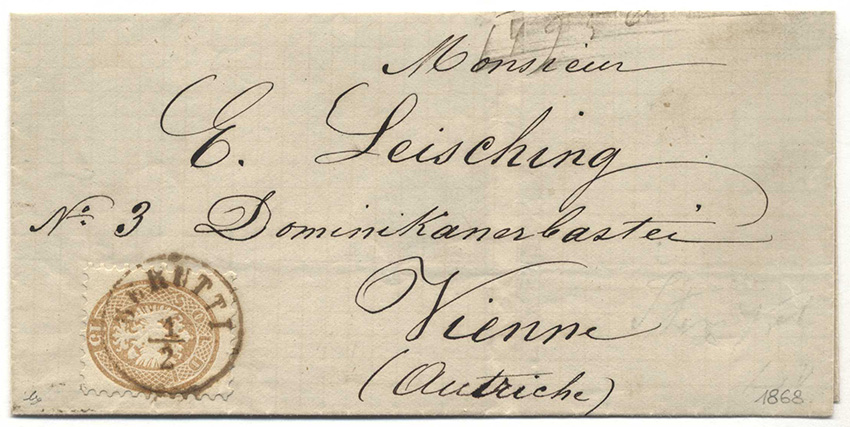 Monsieur
E. Leisching
No: 3 Dominikanerbastei
Vienne
(Autriche)
BERUTTI
1/2
1868